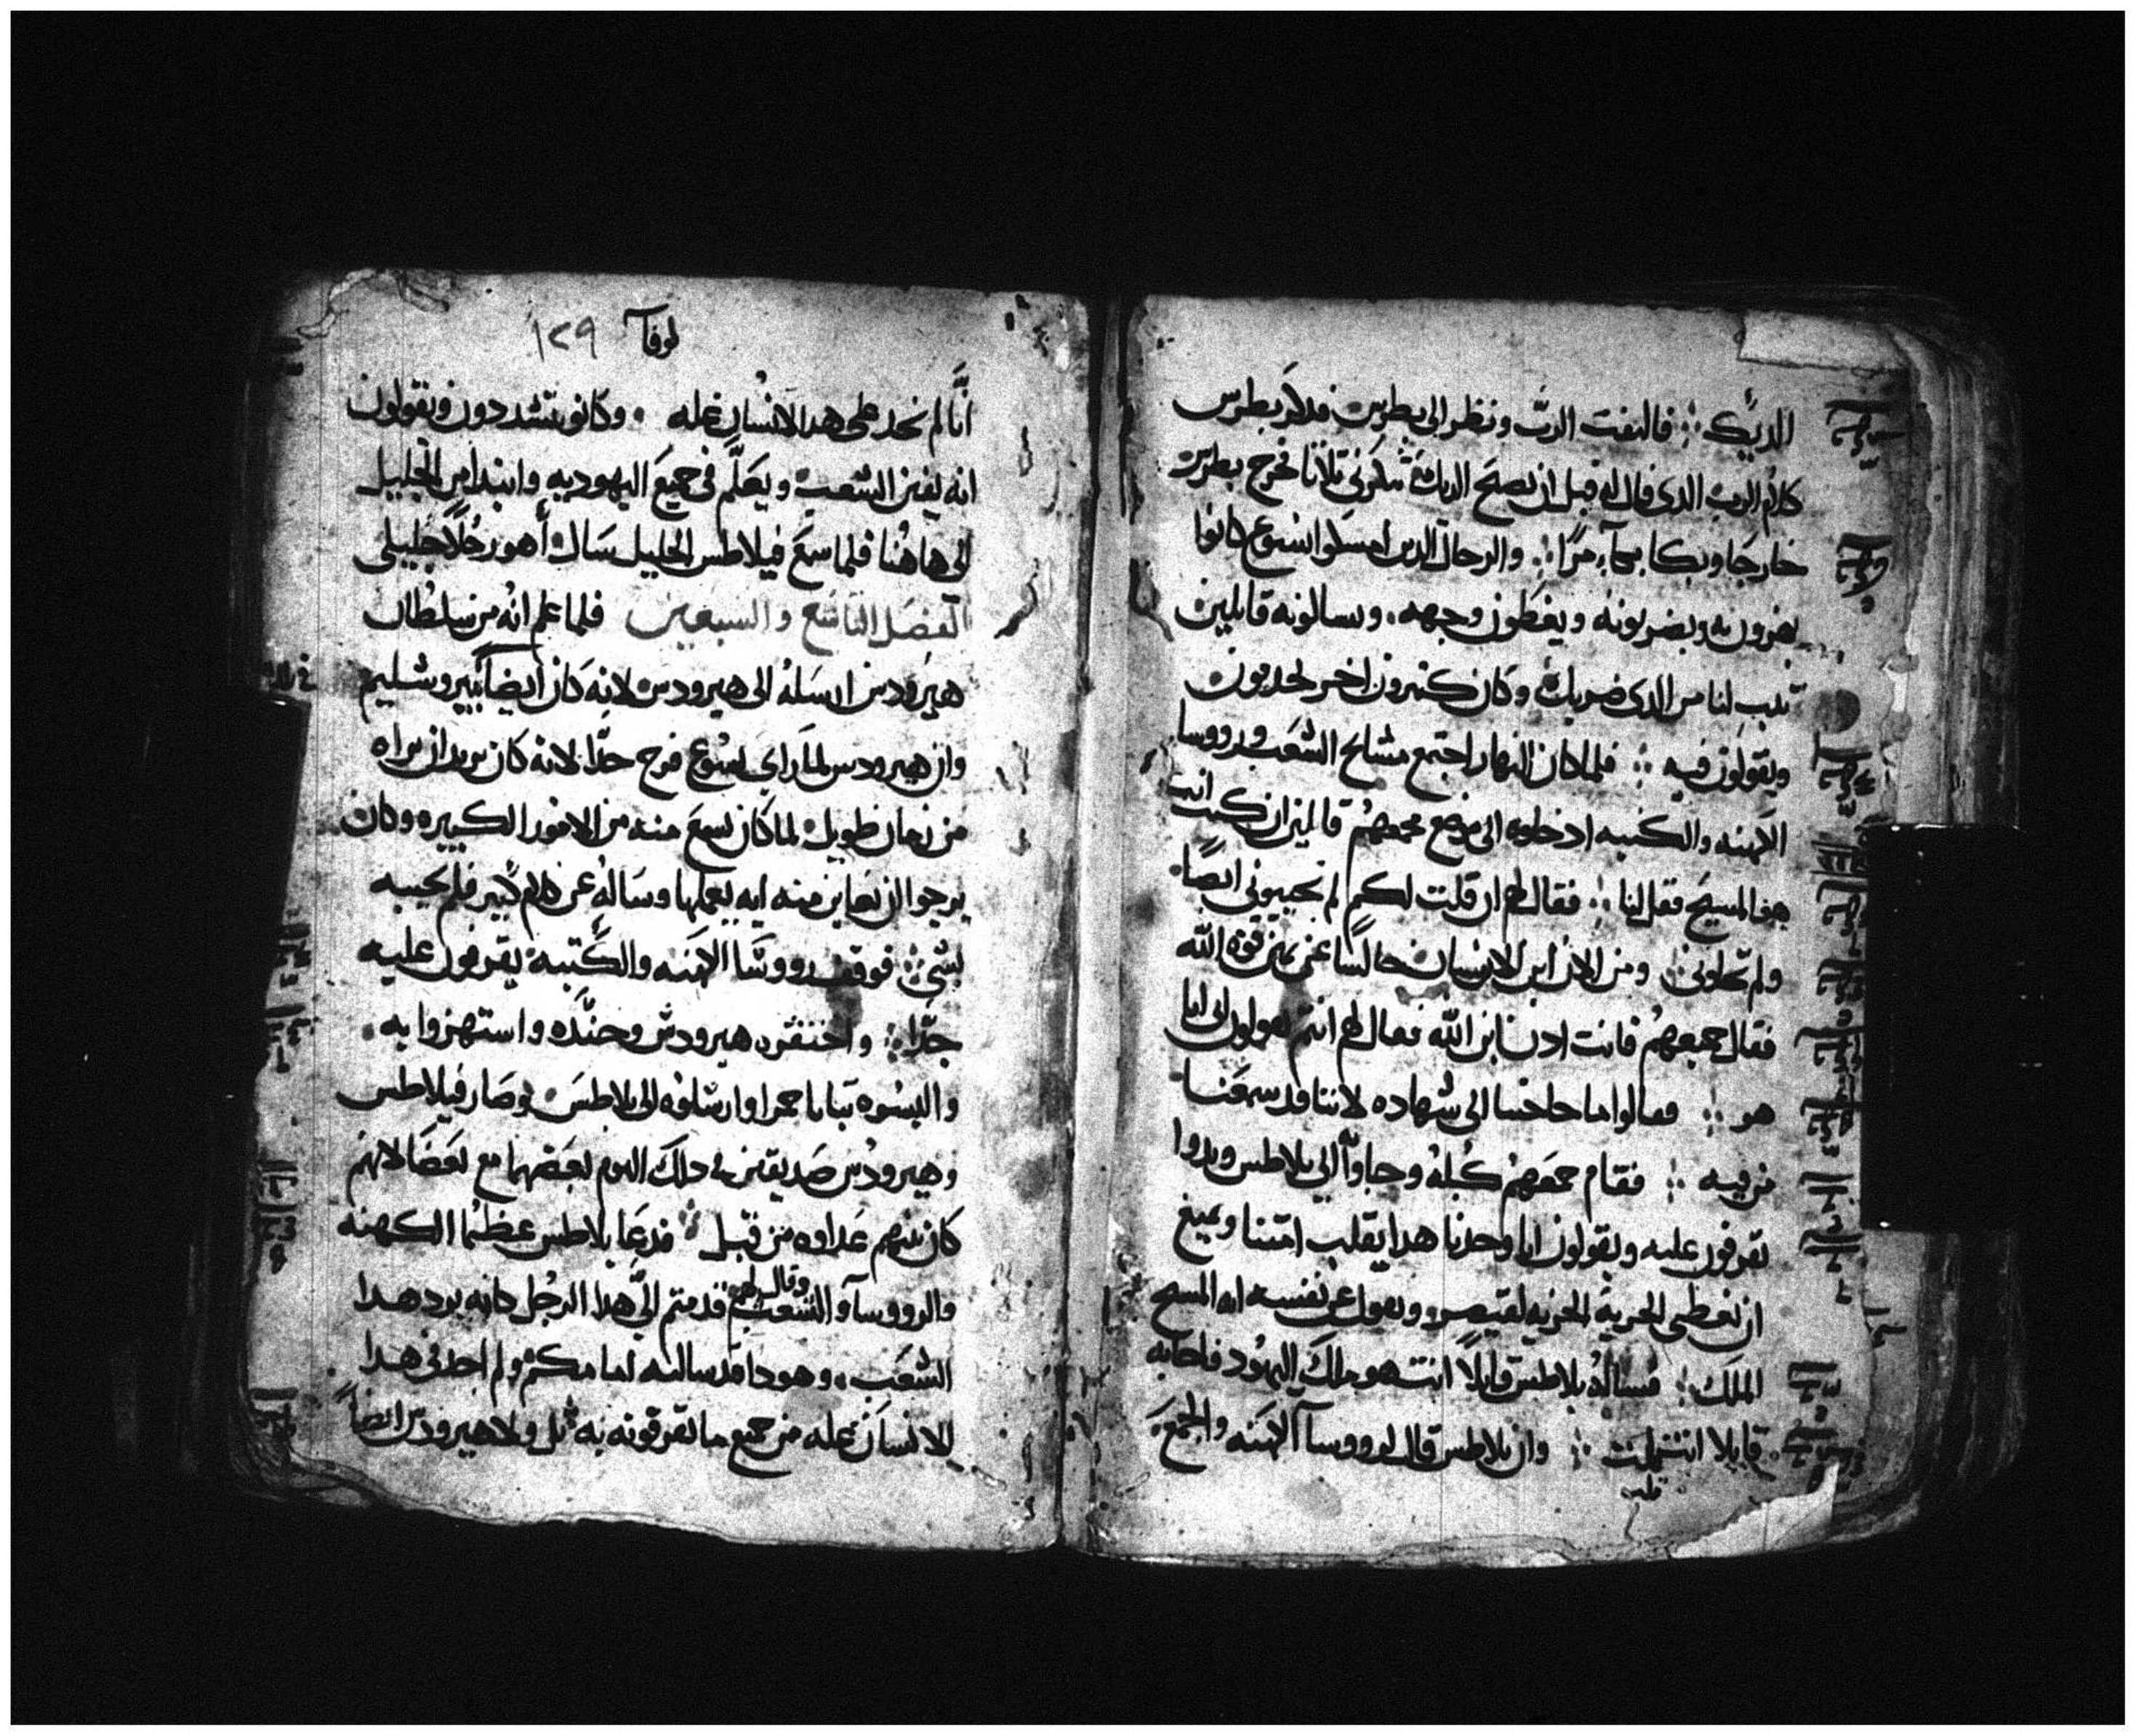 الديك ⁘ فالتفت الرب ونظر الى بطرس فدكر بطرس
كلام الرب الدى قال له قبل ان يصيح الديك تنكرنى تلاتا فخرج بطرس
خارجا وبكا بكآء مرًا ⁘ والرجال الدين امسكوا ايسوع كانوا
يهزون به ويضربونه ويغطون وجهه. ويسالونه قايلين
لنا من الدى ضربك وكان كتيرون اخر يجدبون
ويقولون فيه ⁘ فلما كان النهار اجتمع مشايخ الشعب وروسا
الكهنه والكتبه ادخلوه الى موضع مجمعهم قالمين ان كنت انت
هو المسيح فقل لنا ⁘ فقال لهم ان قلت لكم لم تجيبونى ايضًا
ولم ⁘ ومن الان ابن الانسان جالسًا عن يمين قوة الله
فقال جميعهم فانت ادن ابن الله فقال لهم انتم تقولون انى انا
هو ⁘ فقالوا ما حاجتنا الى شهاده لاننا قد سمعنا
من فيه ⁘ فقام جمعهم كله وجاوا الى بلاطس وبدوا
يقرفون عليه ويقولون انا وجدنا هدا يقلب امتنا ويمنع
ان نعطى الجزية لقيصر ويقول عن نفسه انه المسيح
الملك ⁘ فساله بلاطس قايلًا انت هو ملك اليهود فاجابه
قايلا انت قلت ⁘ وان بلاطس قال لروسا الكهنه والجمع
لوقا ١٢٩
انَّا لم نجد على هدا الانسان عله . وكانو يتشددون ويقولون
انه يفتن الشعب ويعلّم فى جميع اليهوديه وابتدا من الجليل
الى هاهنا فلما سمع فيلاطس الجليل سال أهو رجلًا جليلى
الفصل التاسع والسبعين فلما علم انه من سلطان
هيرودس ارسله الى هيرودس لانه كان أيضا بيروشليم
وان هيرودس لما راى ايسوع فرح جدًا لانه كان يريد ان يراه
من زمان طويل لما كان يسمع عنه من الامور الكبيره وكان
يرجوا ان يعاين منه ايه يعملها وساله عن كلام كبير فلم يجيبه
بشى ⁘ فوقف رووسا الكهنه والكتبة يقرفون عليه
جدًا ⁘ واحتقره هيرودس وجنده واستهزوا به
والبسوه تيابا حمرا وارسلوه الى بلاطس وصار فيلاطس
وهيرودس صديقين فى دلك اليوم بعضهما مع بعضا لانهم
كان بينهم عداوه من قبل ⁘ فدعا بلاطس عظما الكهنه
والرووسآ والشعب وقال لهم قدمتم الىّ هدا الرجل كانه يرد هدا
الشعب. وهودا قد سالته امامكم ولم اجد فى هدا
الانسان عله من جميع ما تقرفونه به بل ولا هيرودس ايضاً